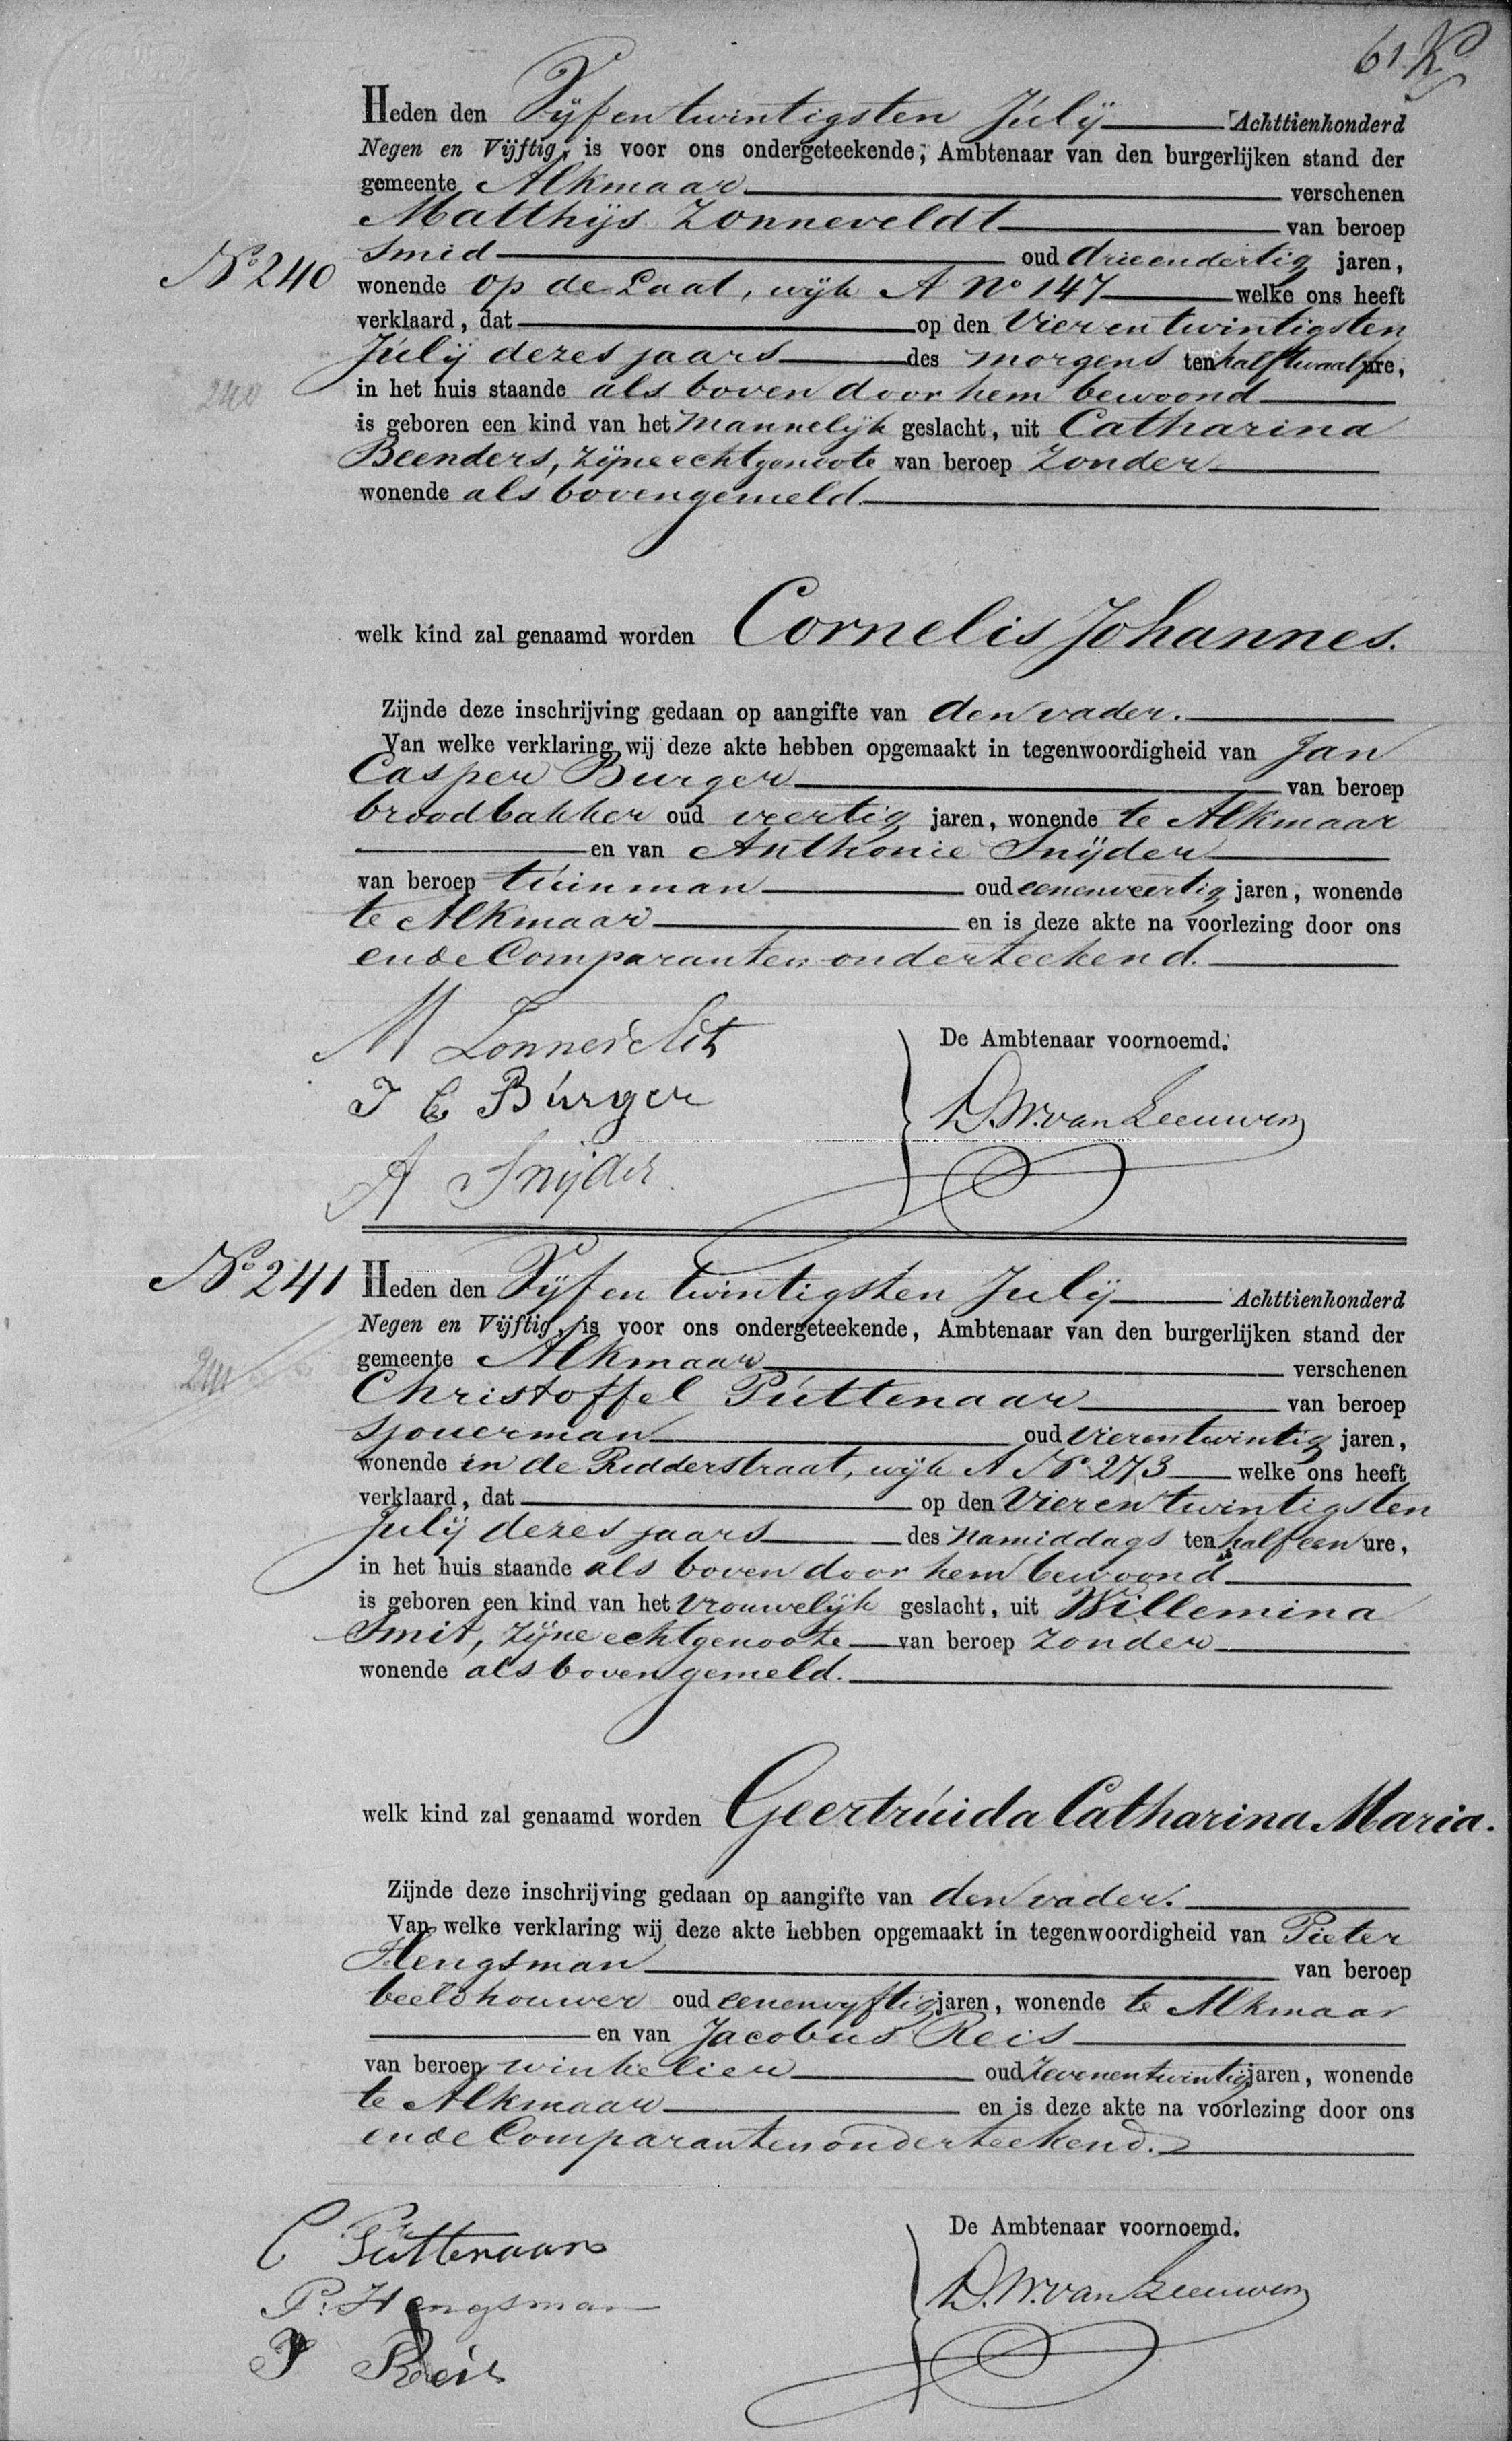 61
Heden den Vijfentwintigsten Julij Achttienhonderd
Negen en Vijftig, is voor ons ondergeteekende, Ambtenaar van den burgerlijken stand der
gemeente Alkmaar verschenen
Matthijs Zonneveldt van beroep
Smid oud drieendertig jaren,
No 240
wonende op de Laat, wijk A No 147 welke ons heeft
verklaard, dat op den Vierentwintigsten
Julij dezes jaars des morgens ten half twaalf ure,
240
in het huis staande als boven door hem bewoond
is geboren een kind van het Mannelijk geslacht, uit Catharina
Beenders, zijne echtgenoote van beroep Zonder
wonende als bovengemeld.
welk kind zal genaamd worden Cornelis Johannes.
Zijnde deze inschrijving gedaan op aangifte van den vader.
Van welke verklaring wij deze akte hebben opgemaakt in tegenwoordigheid van Jan
Casper Burger van beroep
broodbakker oud veertig jaren, wonende te Alkmaar
en van Anthonie Snijder
van beroep tuinman oud eenenveertig jaren, wonende
te Alkmaar en is deze akte na voorlezing door ons
en de Comparanten onderteekend.
M Zonneveldt
De Ambtenaar voornoemd.
J C Burger
D.W. van Leeuwen
A Snijder
No 241
Heden den Vijfentwintigsten Julij Achttienhonderd
Negen en Vijftig, is voor ons ondergeteekende, Ambtenaar van den burgerlijken stand der
241
gemeente Alkmaar verschenen
Christoffel Puttenaar van beroep
sjouerman oud vierentwintig jaren,
wonende in de Ridderstraat, wijk A No 273 welke ons heeft
verklaard, dat op den Vierentwintigsten
Julij dezes jaars des namiddags ten half een ure,
in het huis staande als boven door hem bewoond
is geboren een kind van het Vrouwelijk geslacht, uit Willemina
Smit, zijne echtgenoote van beroep zonder
wonende als bovengemeld.
welk kind zal genaamd worden Geertruida Catharina Maria.
Zijnde deze inschrijving gedaan op aangifte van den vader.
Van welke verklaring wij deze akte hebben opgemaakt in tegenwoordigheid van Pieter
Hengsman van beroep
beeldhouwer oud eenenvyftig jaren, wonende te Alkmaar
en van Jacobus Reis
van beroep winkelier oud Zevenentwintig jaren, wonende
te Alkmaar en is deze akte na voorlezing door ons
en de Comparanten onderteekend.
C Puttenaar
De Ambtenaar voornoemd.
P. Hengsman
D.W. van Leeuwen
J Reis